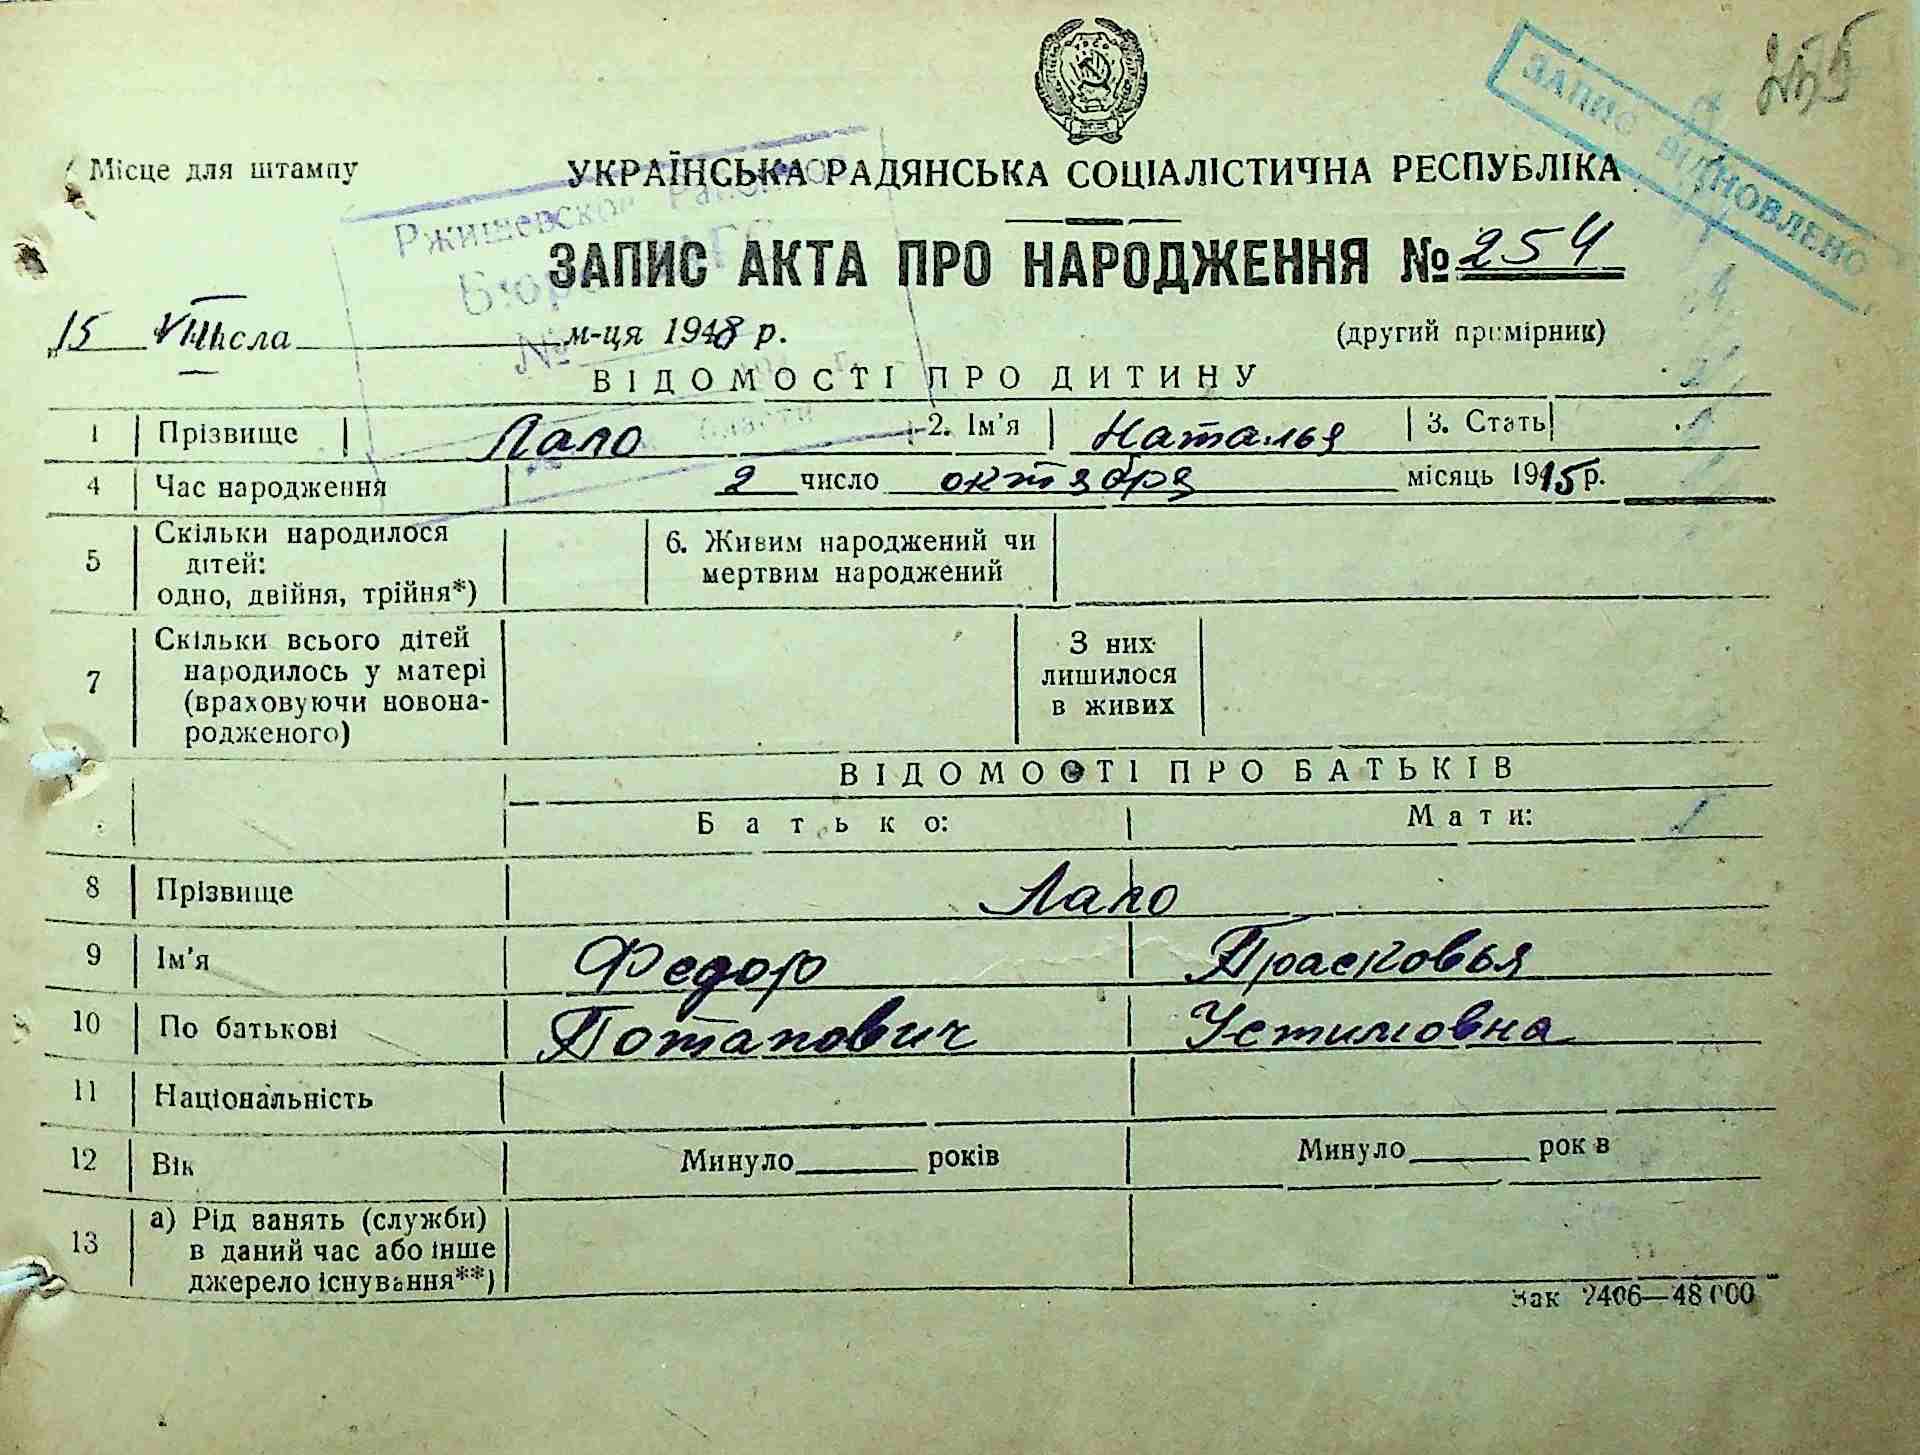 255
ЗАПИС ВІДНОВЛЕНО
Місце для штампу
УКРАЇНСЬКА РАДЯНСЬКА СОЦІАЛІСТИЧНА РЕСПУБЛІКА
Ржищевское Районное
Бюро ЗАГС
№
ЗАПИС АКТА ПРО НАРОДЖЕННЯ № 254
"15 VIII числа м-ця 1948 р. (другий примірник)
ВІДОМОСТІ ПРО ДИТИНУ
1 Прізвище Лапо 2. Ім'я Наталья 3. Стать
4 Час народження 2 число октября місяць 1915 р.
5 Скільки народилося дітей: одно, двійня, трійня*) 6. Живим народжений чи мертвим народжений
7 Скільки всього дітей народилось у матері (враховуючи новона-родженого) З них лишилося в живих
ВІДОМОСТІ ПРО БАТЬКІВ
Батько: Мати:
8 Прізвище Лапо
9 Ім'я Федор Прасковья
10 По батькові Потапович Устимовна
11 Національність
12 Вік Минуло років Минуло рок в
13 а) Рід занять (служби) в даний час або інше джерело існування**)
Зак 2406—48 000